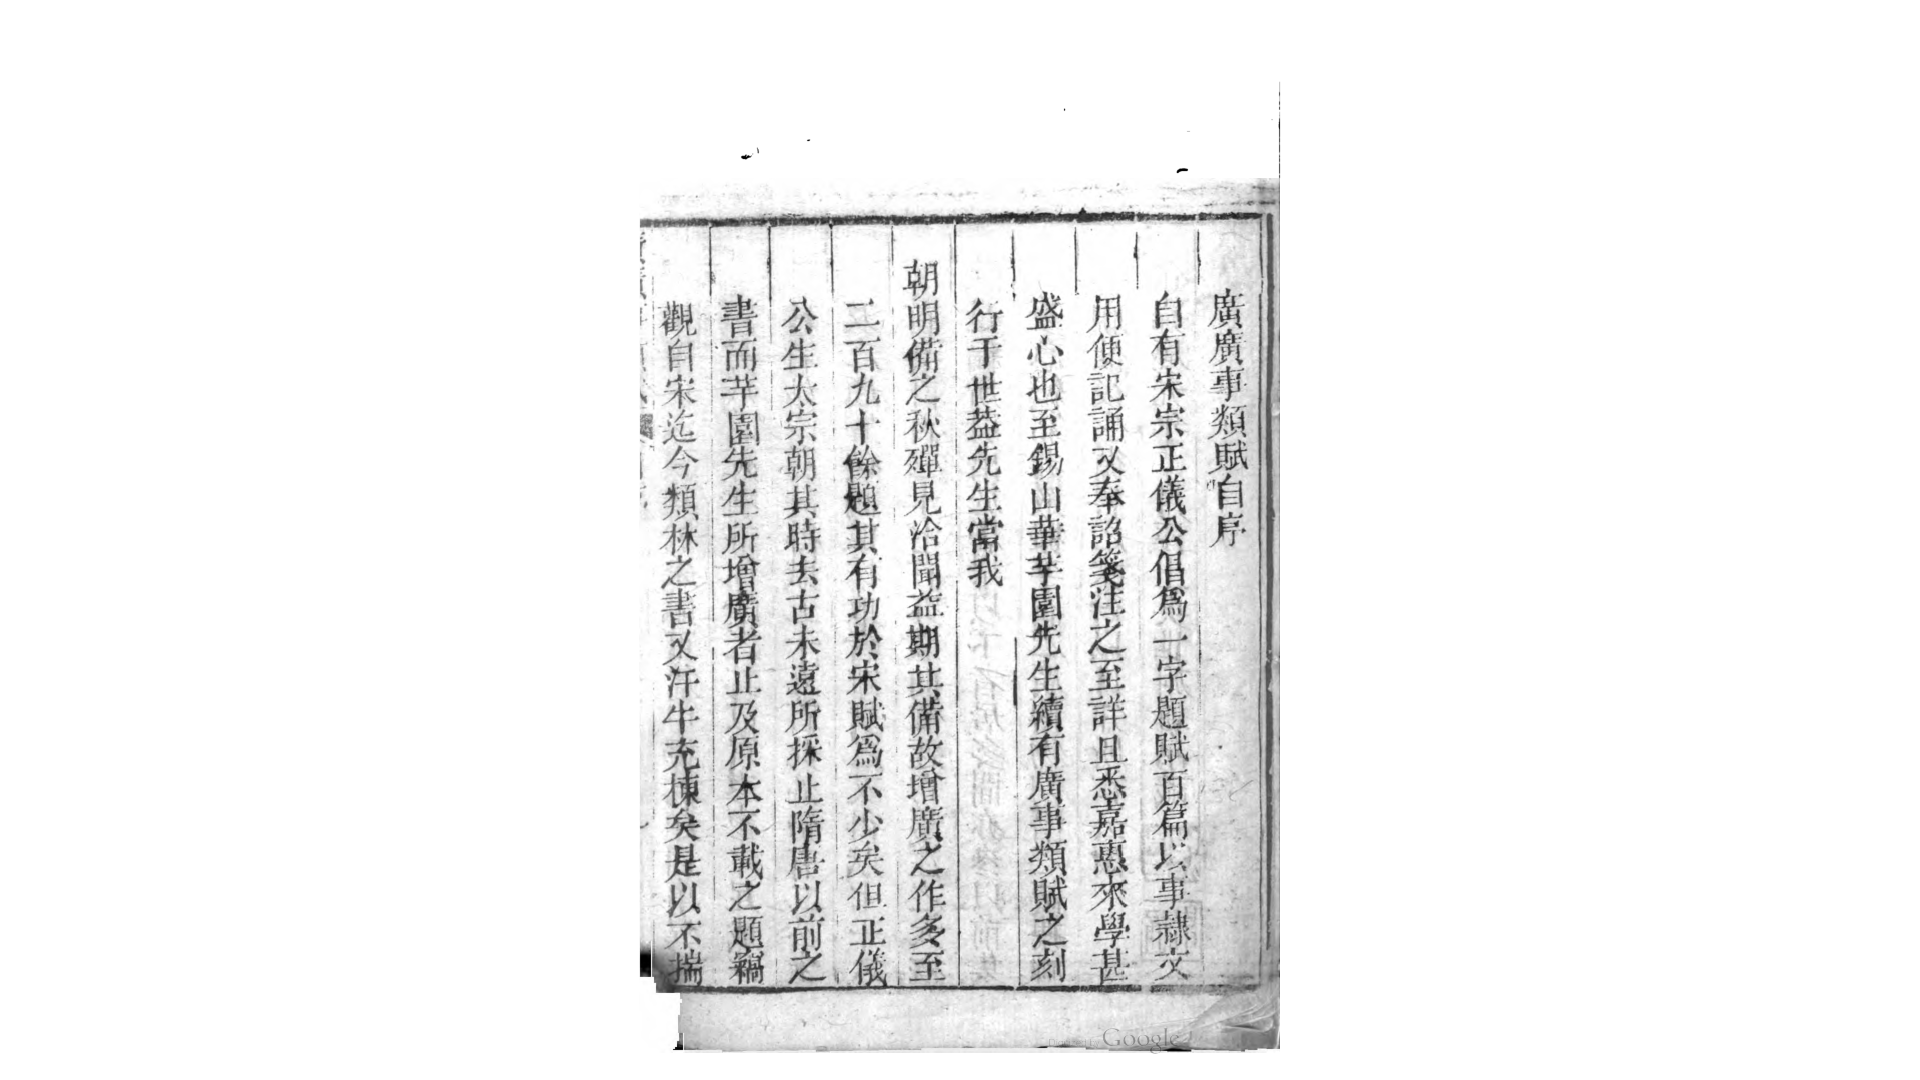 廣廣事類賦自序
自有宋宗正儀公倡爲一字題賦百篇以事隷文
用便記誦又奉詔箋注之至詳且悉嘉惠來學甚
盛心也至錫山華芋園先生續有廣事類賦之刻
行于世葢先生當我
朝明備之秋殫見洽聞益期其備故增廣之作多至
二百九十餘題其有功於宋賦爲不少矣但正儀
公生太宗朝其時去古未遠所採止隋唐以前之
書而芋園先生所增廣者止及原本不載之題竊
觀自宋迄今類林之書又汗牛充棟矣是以不揣
Google